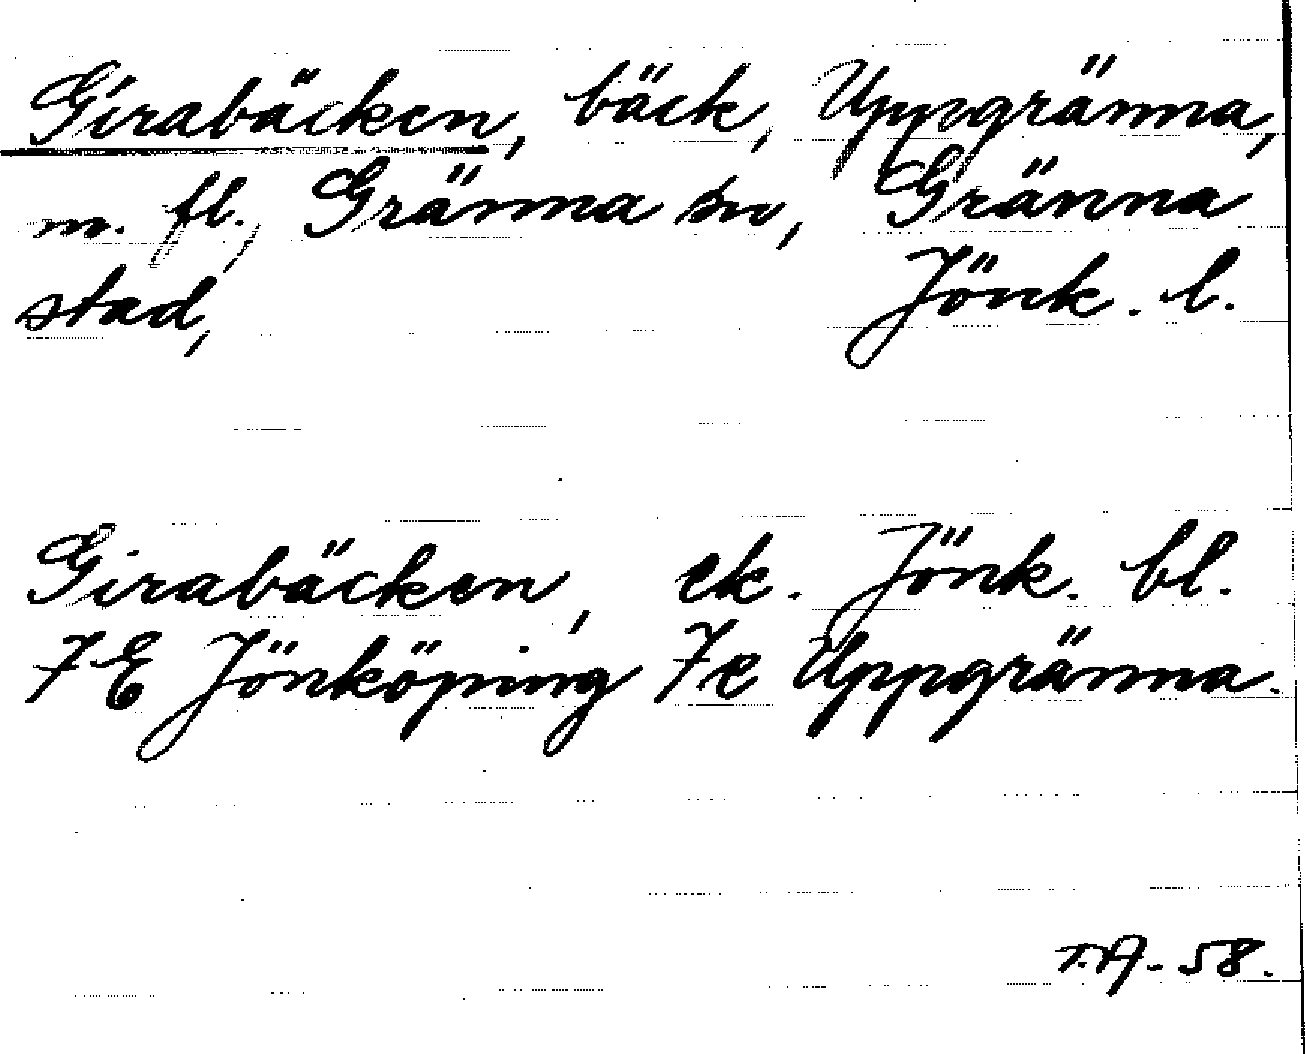 Girabäcken, bäck, Uppgränna,
m. fl., Gränna sn, Gränna
stad, Jönk. l.
Girabäcken, ek. Jönk. bl.
7 E Jönköping 7e Uppgränna.
T.A - 58.